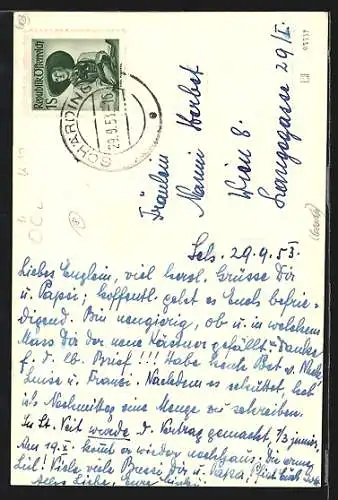 Republik Österreich
1 S
SCHÄRDING
29.9.53
Fräulein
Wien 8.
Langegasse 29/I.
29.9.53.
Liebes Englein, viel herzl. Grüsse Dir
u. Papsi; hoffentl. geht es Euch befrie-
digend. Bin neugierig, ob u. in welchem
Mass Dir der neue Kästner gefällt. Danke
f. d. lb. Brief!!! Habe heute Post v.
Luise u. Franzi. Nachdem es schüttet, hab
ich Nachmittag eine Menge zu schreiben.
In St. Veit wurde d. Vortrag gemacht,
Am 19. kommt er wieder nachhaus; die arme
Viele viele Bussi Dir u. Papsi,
Alles Liebe, Eure